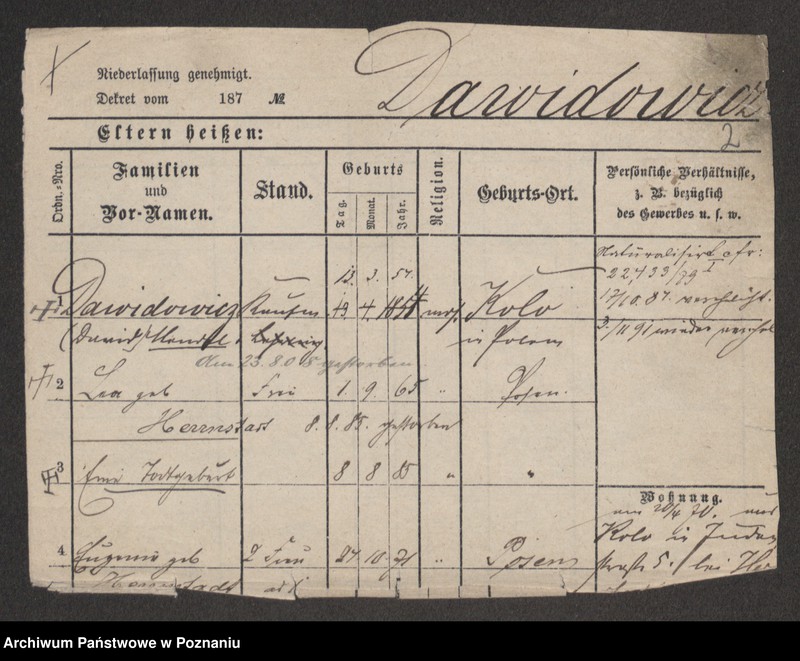 Niederlassung genehmigt.
Dekret vom 187 №
Dawidowicz
2
Eltern heißen:
Ordn.-Nro.
Familien
und
Vor-Namen.
Stand.
Geburts
Tag.
Monat.
Jahr.
Religion.
Geburts-Ort.
Persönliche Verhältnisse,
z. B. bezüglich
des Gewerbes u. s. w.
Naturalisirt
22433/79 I
13. 3. 57.
1 Dawidowicz Kaufm 4. mos. Kolo
17/10. 87.
(David) in Polen
3/11 91 wieder
am 23.8.08 gestorben
2 Lea geb Frau 1. 9. 65 " Posen.
Herrnstadt 8. 8. 85. gestorben
3 Eine Todtgeburt 8 8 85 " "
Wohnung.
am 20/4 70. aus
Kolo in Juden
straße 5. bei
4 Eugenie geb 2 Frau 27 10 71 " Posen
Herrnstadt
Archiwum Państwowe w Poznaniu